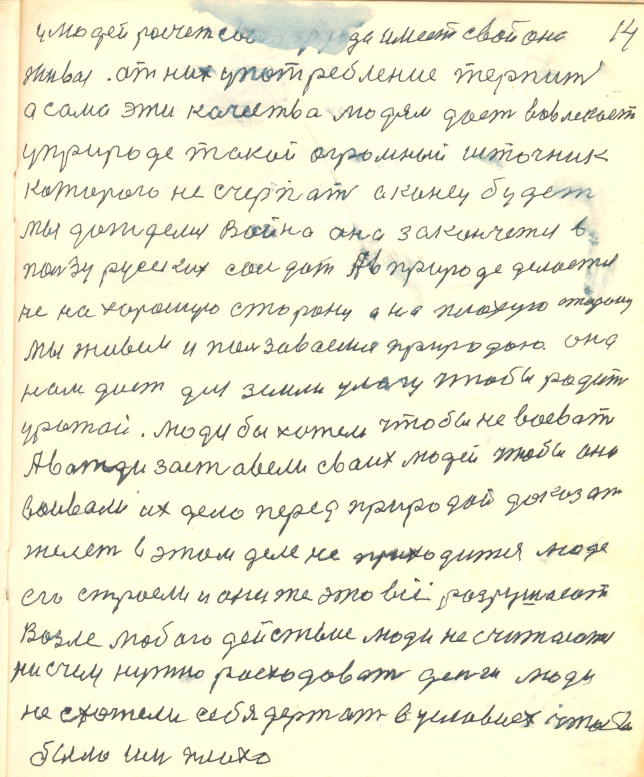 14
умодей росчет свой природа имеет свой она
живая. от них употребление терпит
а сама эти качества людям дает вовлекает
уприроде такой огромный источник
которого не счерпат а конец будет
мы дождели Война она закончети в
ползу русских солдат Ав природе делается
не на хорошую сторону а на плохую сторону
мы живем и ползаваемся природаю она
нам дает для земли улагу чтобы радит
урожай. люди бы хотели чтобы не воеват
А вожди заставели сваих людей чтобы они
воивали их дело перед природай доказат
желет в этом деле не приходится люде
его строели и они же это всё розрушают
Возле любого действие люди не считаются
ни с чем нужно росходоват денги люди
не схотели себя держат в условиех что бы
было им плохо